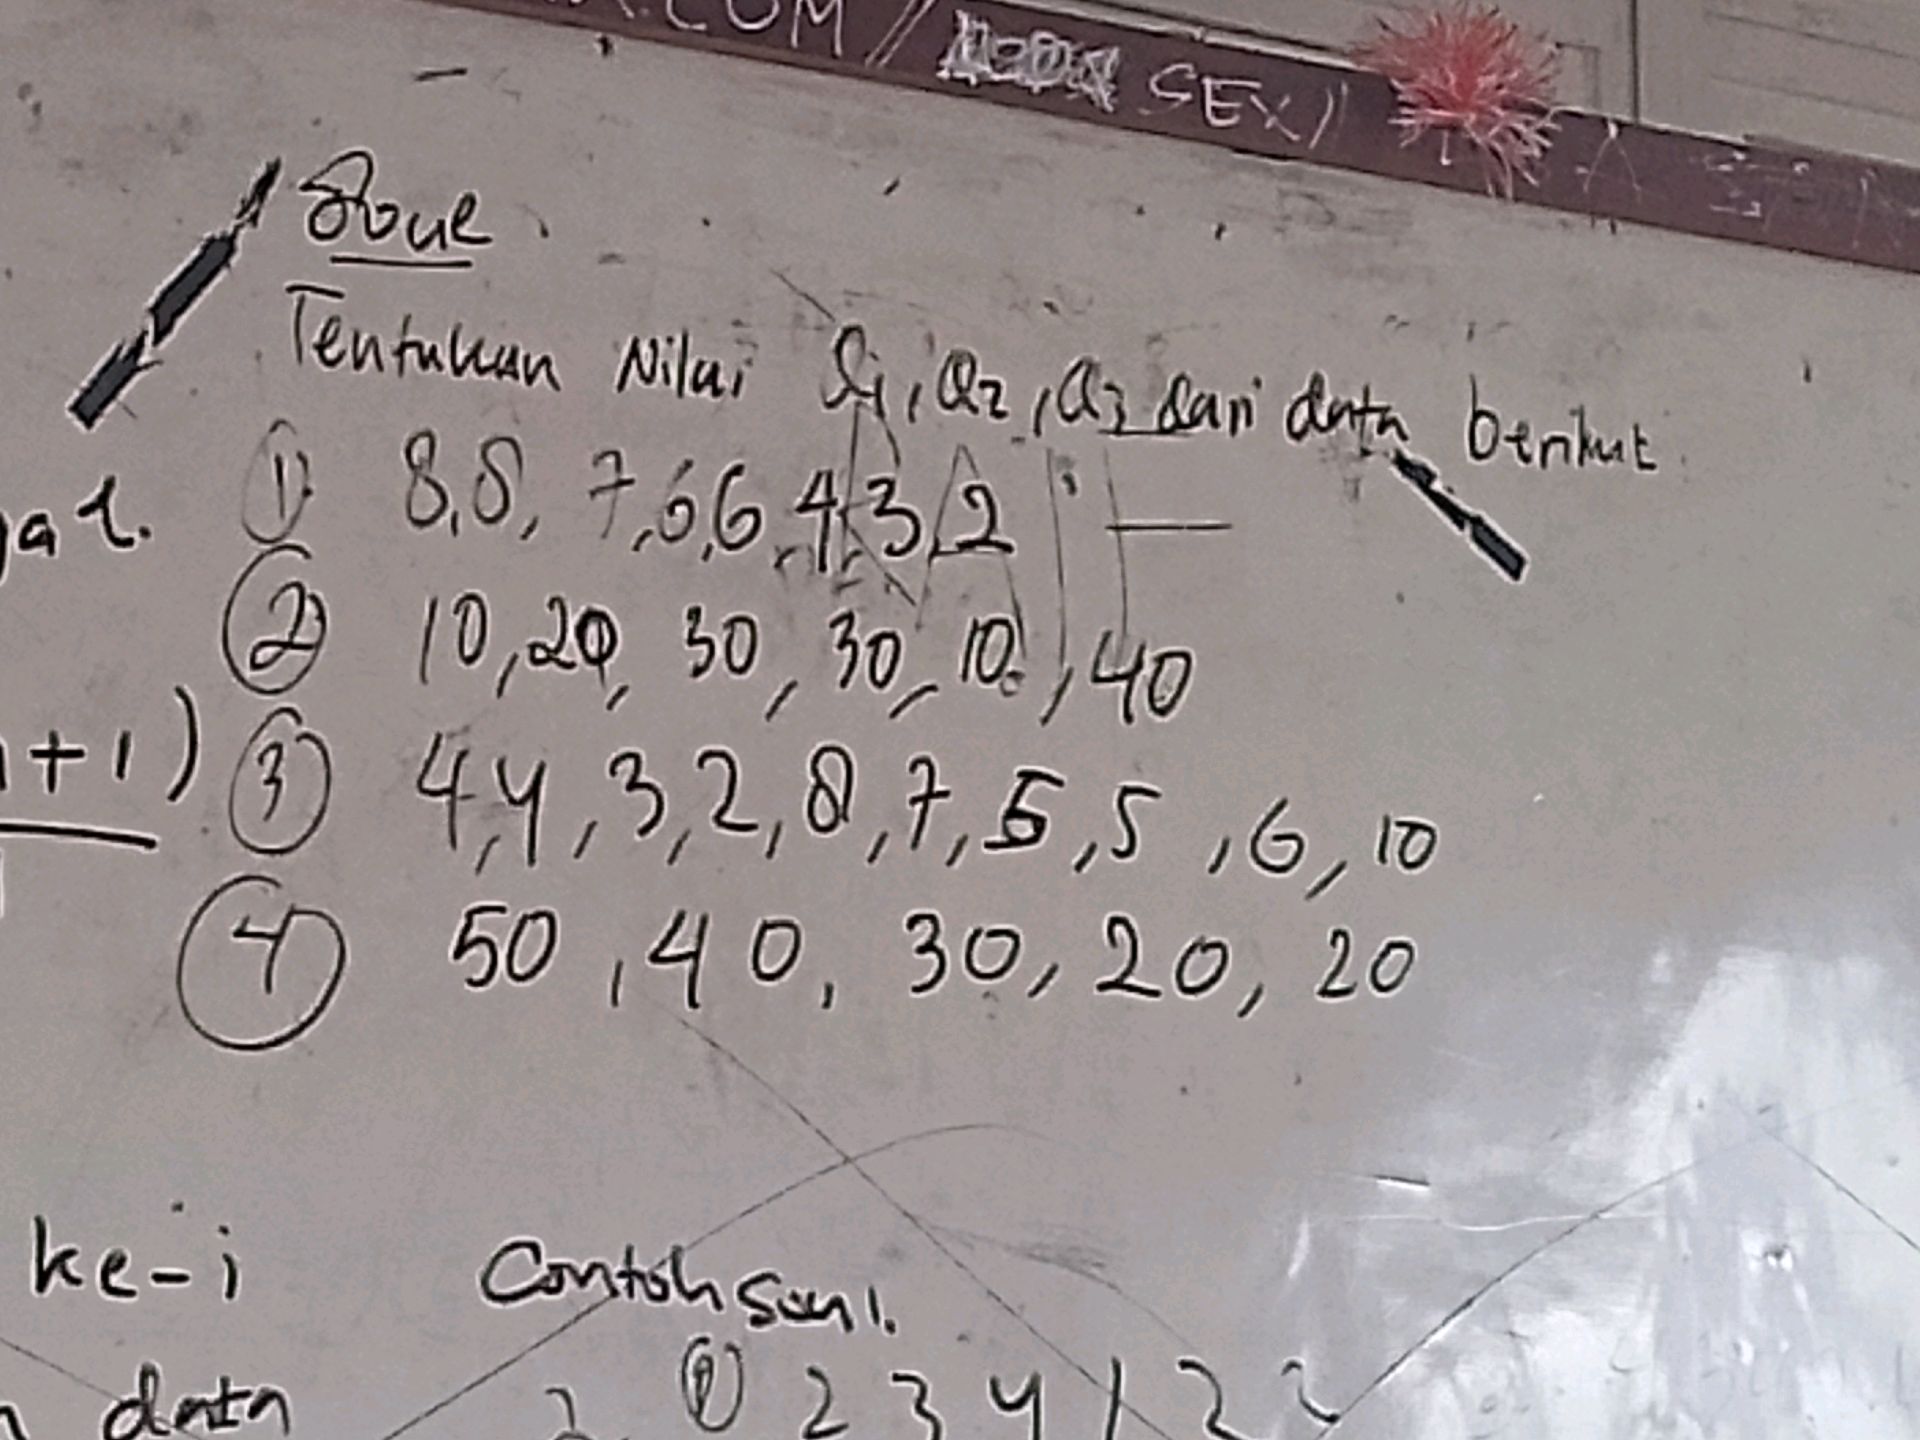 .COM // SEX //
Soal
Tentukan Nilai Q1, Q2, Q3 dari data berikut
① 8,8, 7,6,6,4,3,2
gal.
② 10,20, 30, 30, 10, 40
+1)
③ 4,4,3,2,8,7,5,5,6,10
④ 50, 40, 30, 20, 20
ke-i
Contoh soal.
data
① 2 3 4 1 2 2